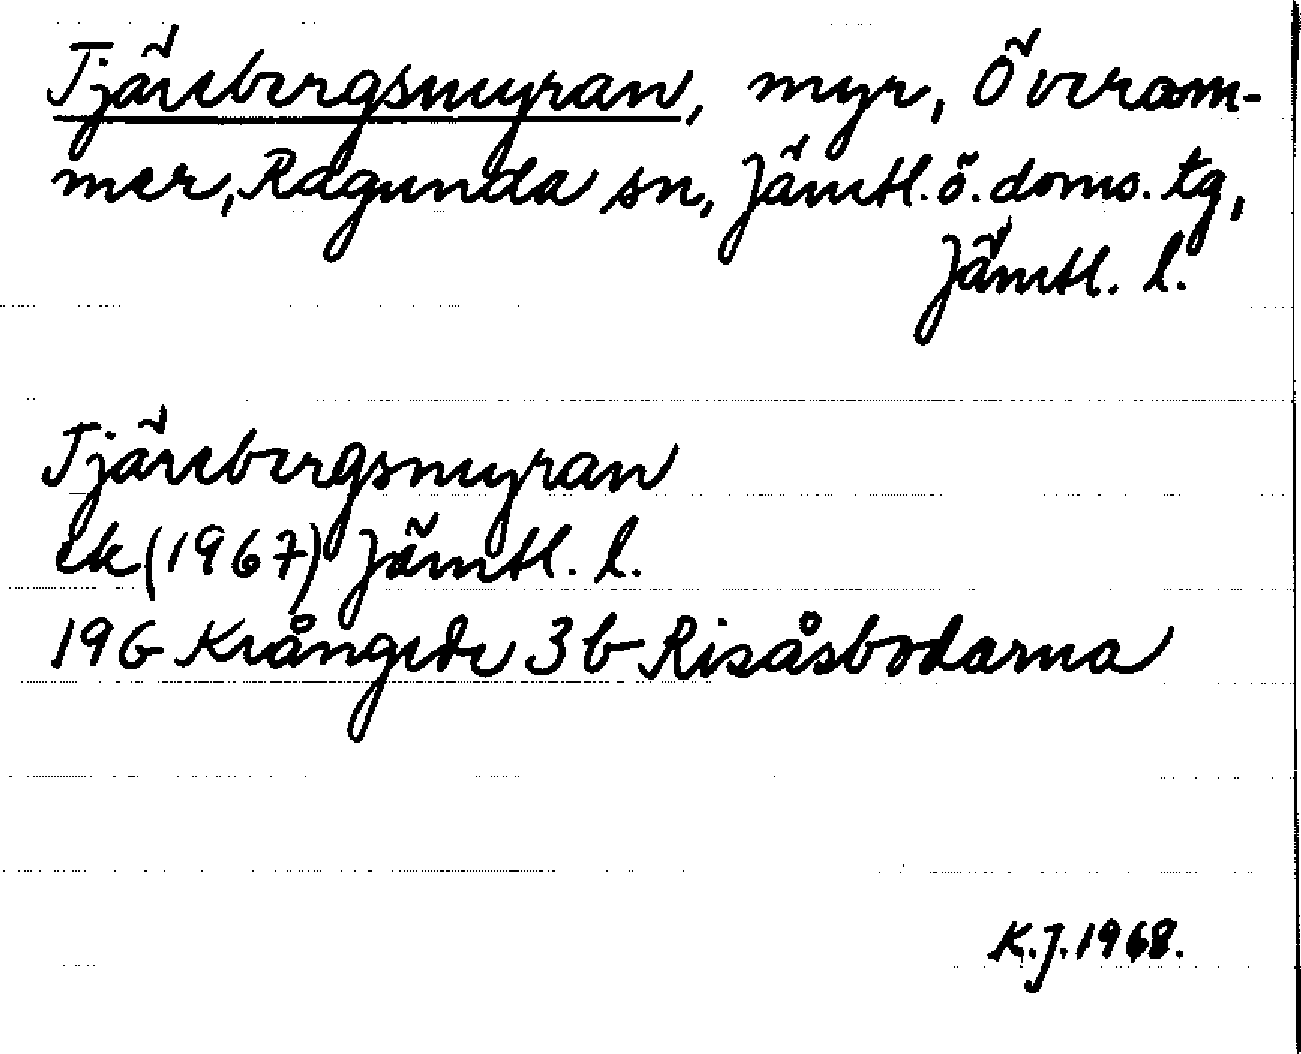 Tjärebergsmyran, myr, Överam-
mer, Ragunda sn, Jämtl. ö. doms. tg,
Jämtl. l.
Tjärebergsmyran
ek (1967) Jämtl. l.
19G Krångede 3b Risåsbodarna
K.J. 1968.